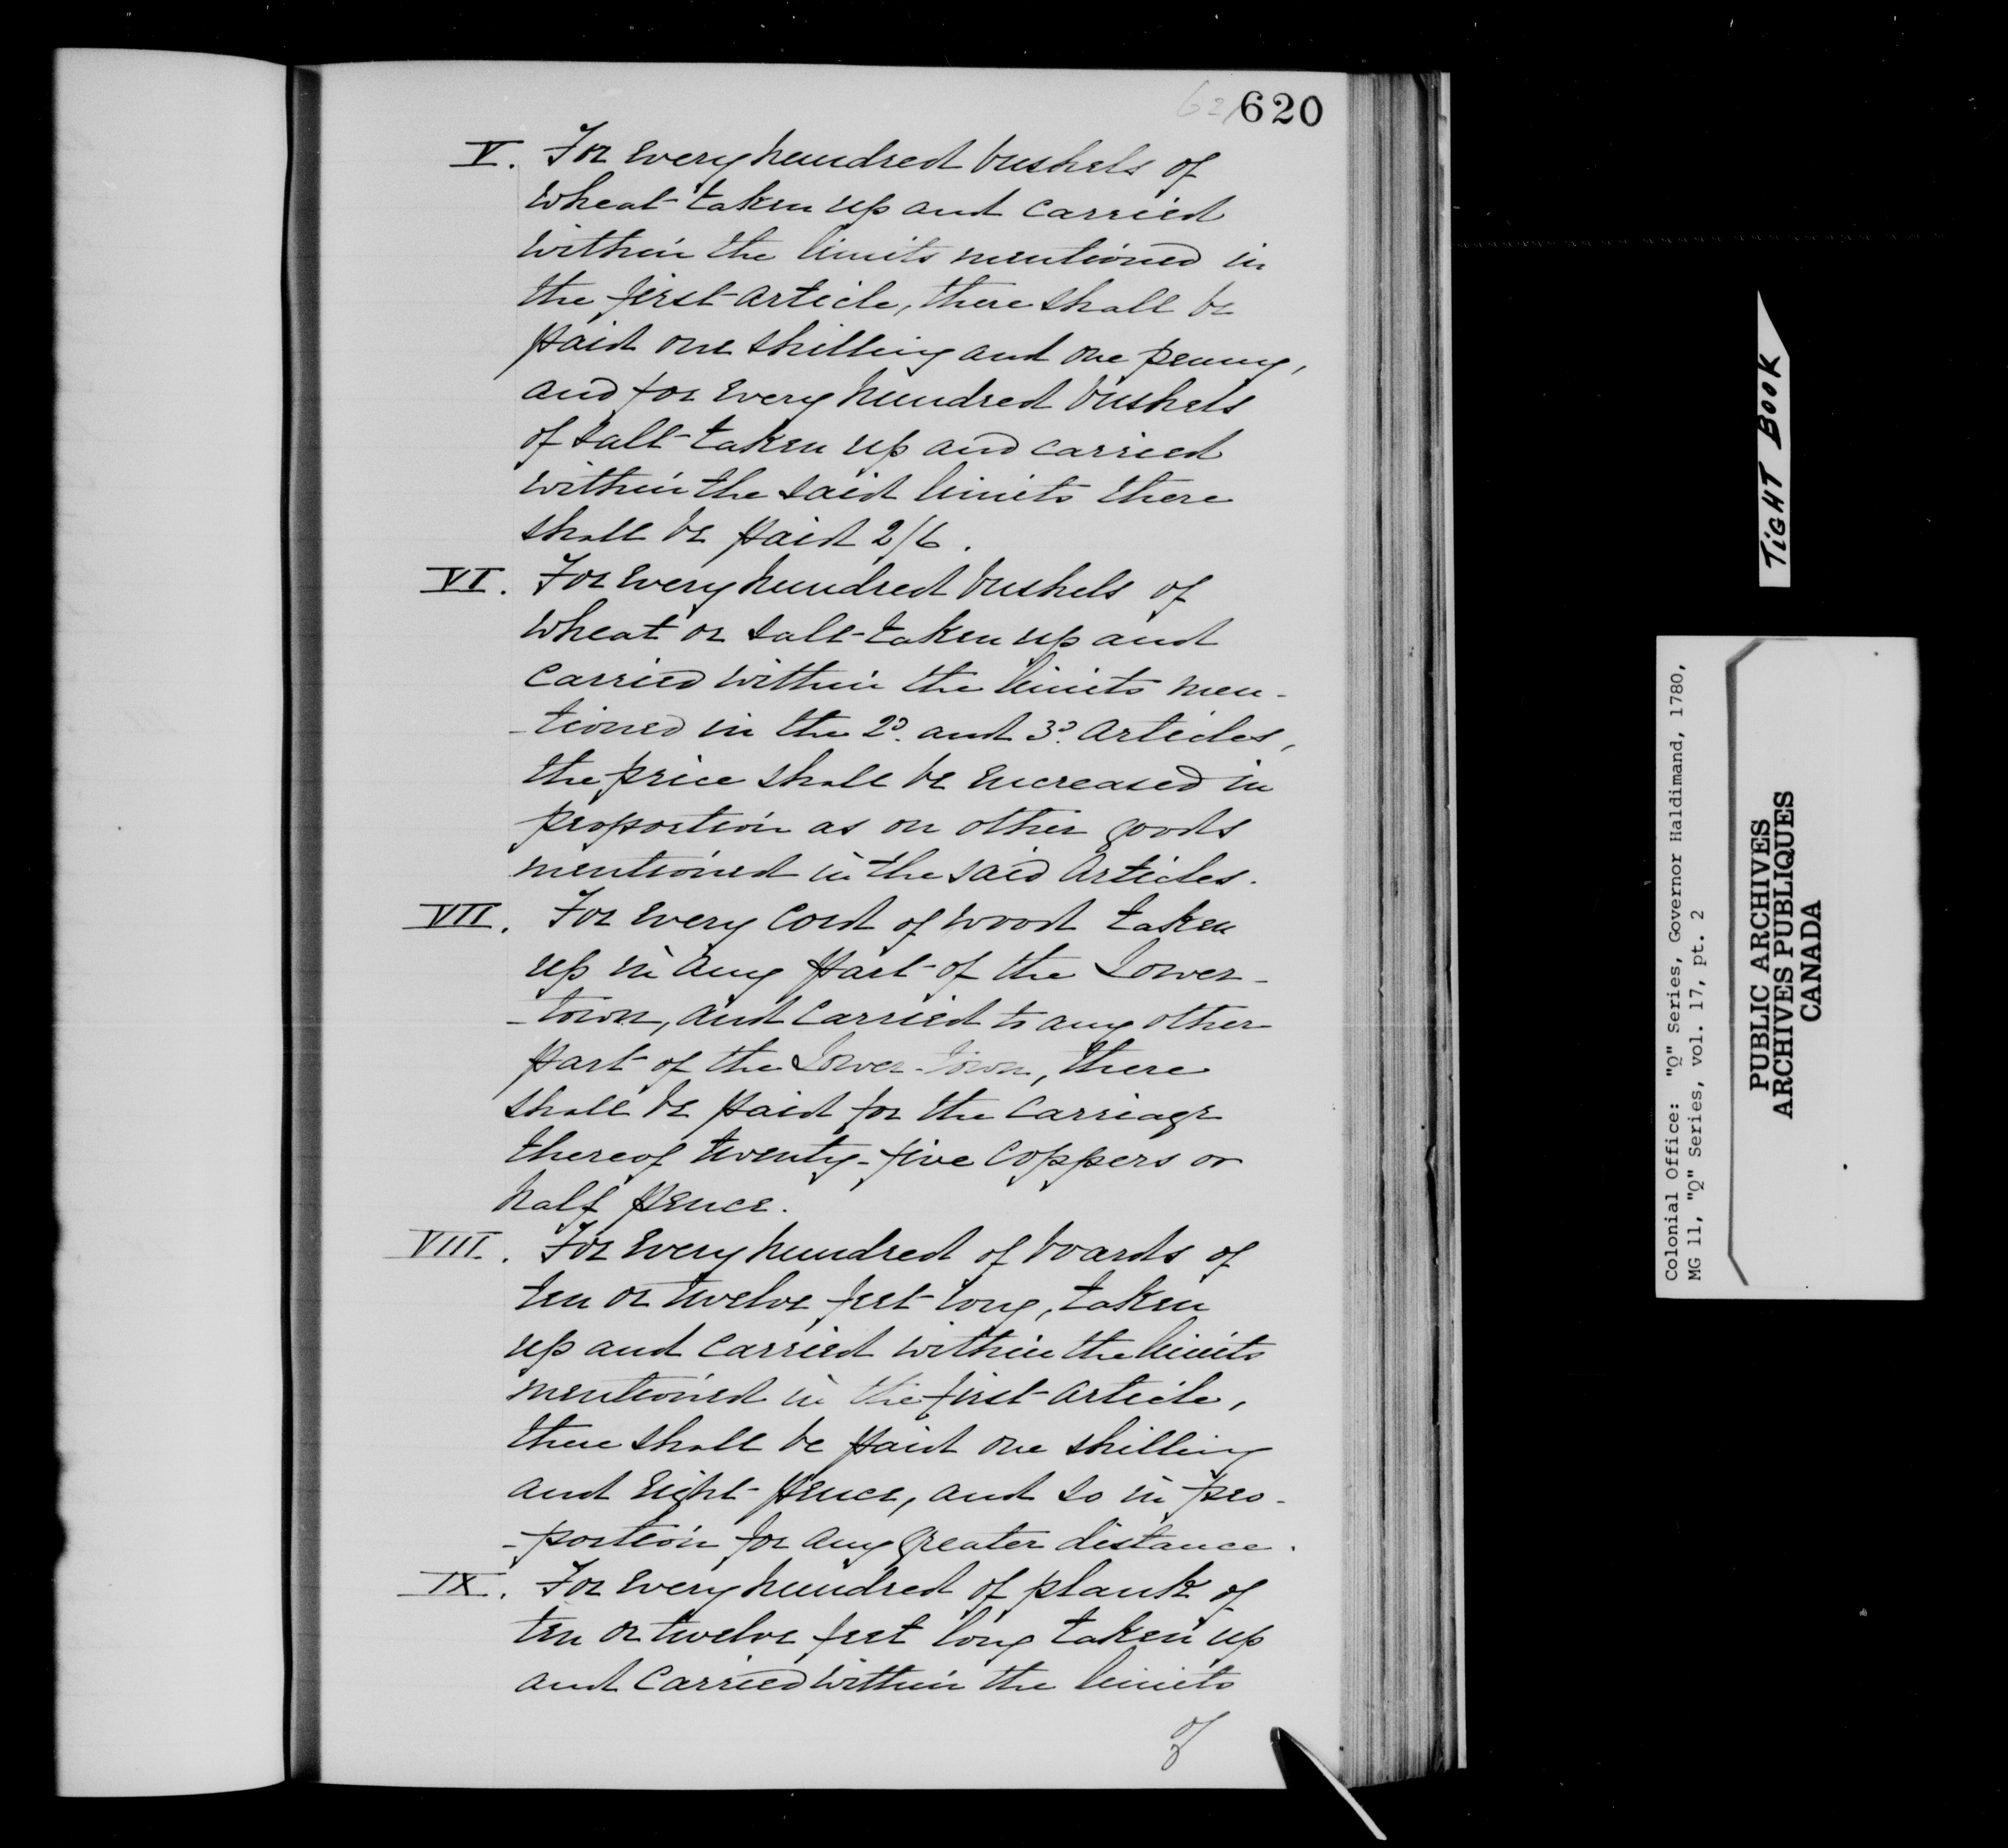 621
620
V. For every hundred bushels of
wheat taken up and carried
within the limits mentioned in
the first article, there shall be
paid one shilling and one penny,
and for every hundred bushels
of salt taken up and carried
within the said limits there
shall be paid 2/6.
VI. For every hundred bushels of
wheat or salt taken up and
carried within the limits men-
-tioned in the 2d. and 3d. articles,
the price shall be encreased in
proportion as on other goods
mentioned in the said articles.
VII. For every cord of wood taken
up in any part of the Lower-
-town, and carried to any other
part of the Lower-town, there
shall be paid for the carriage
thereof twenty-five coppers or
half pence.
VIII. For every hundred of boards of
ten or twelve feet long, taken
up and carried within the limits
mentioned in the first article,
there shall be paid one shilling
and eight pence, and so in pro-
-portion for any greater distance.
IX. For every hundred of plank of
ten or twelve feet long taken up
and carried within the limits
of
TIGHT BOOK
Colonial Office: "Q" Series, Governor Haldimand, 1780,
MG 11, "Q" Series, vol. 17, pt. 2
PUBLIC ARCHIVES
ARCHIVES PUBLIQUES
CANADA